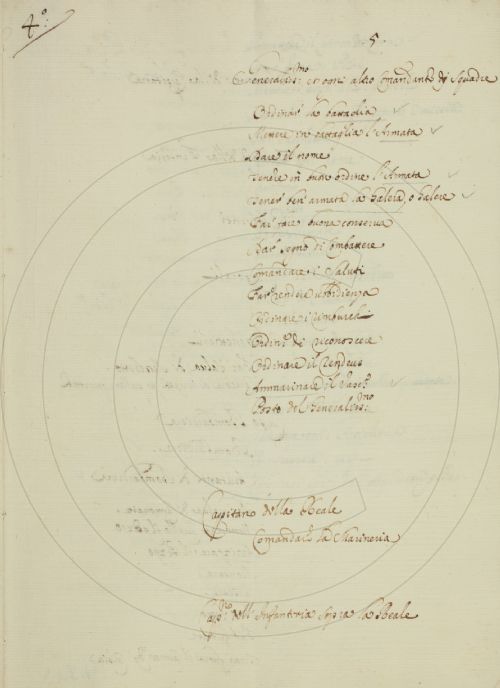 4°:
5.
Generaliss:mo et ogni altro Comandante di Squadre
Ordinar la battaglia
Mettere in battaglia l'Armata
Dare il nome
Tenere in buon ordine l'Armata
Tener ben armata la Galera, o Galere
Far fare buona conserva
Dar segno di combattere
Comandare i Saluti
Far rendere ubbidienza
Ordinare i
Ordin: di riconoscere
Ordinare il Rendeus
Ammarinare il Vasc:
Posto del Generaliss:mo
Capitano della Reale
Comandar la Marineria
Cap:no dell' Infanteria sopra la Reale